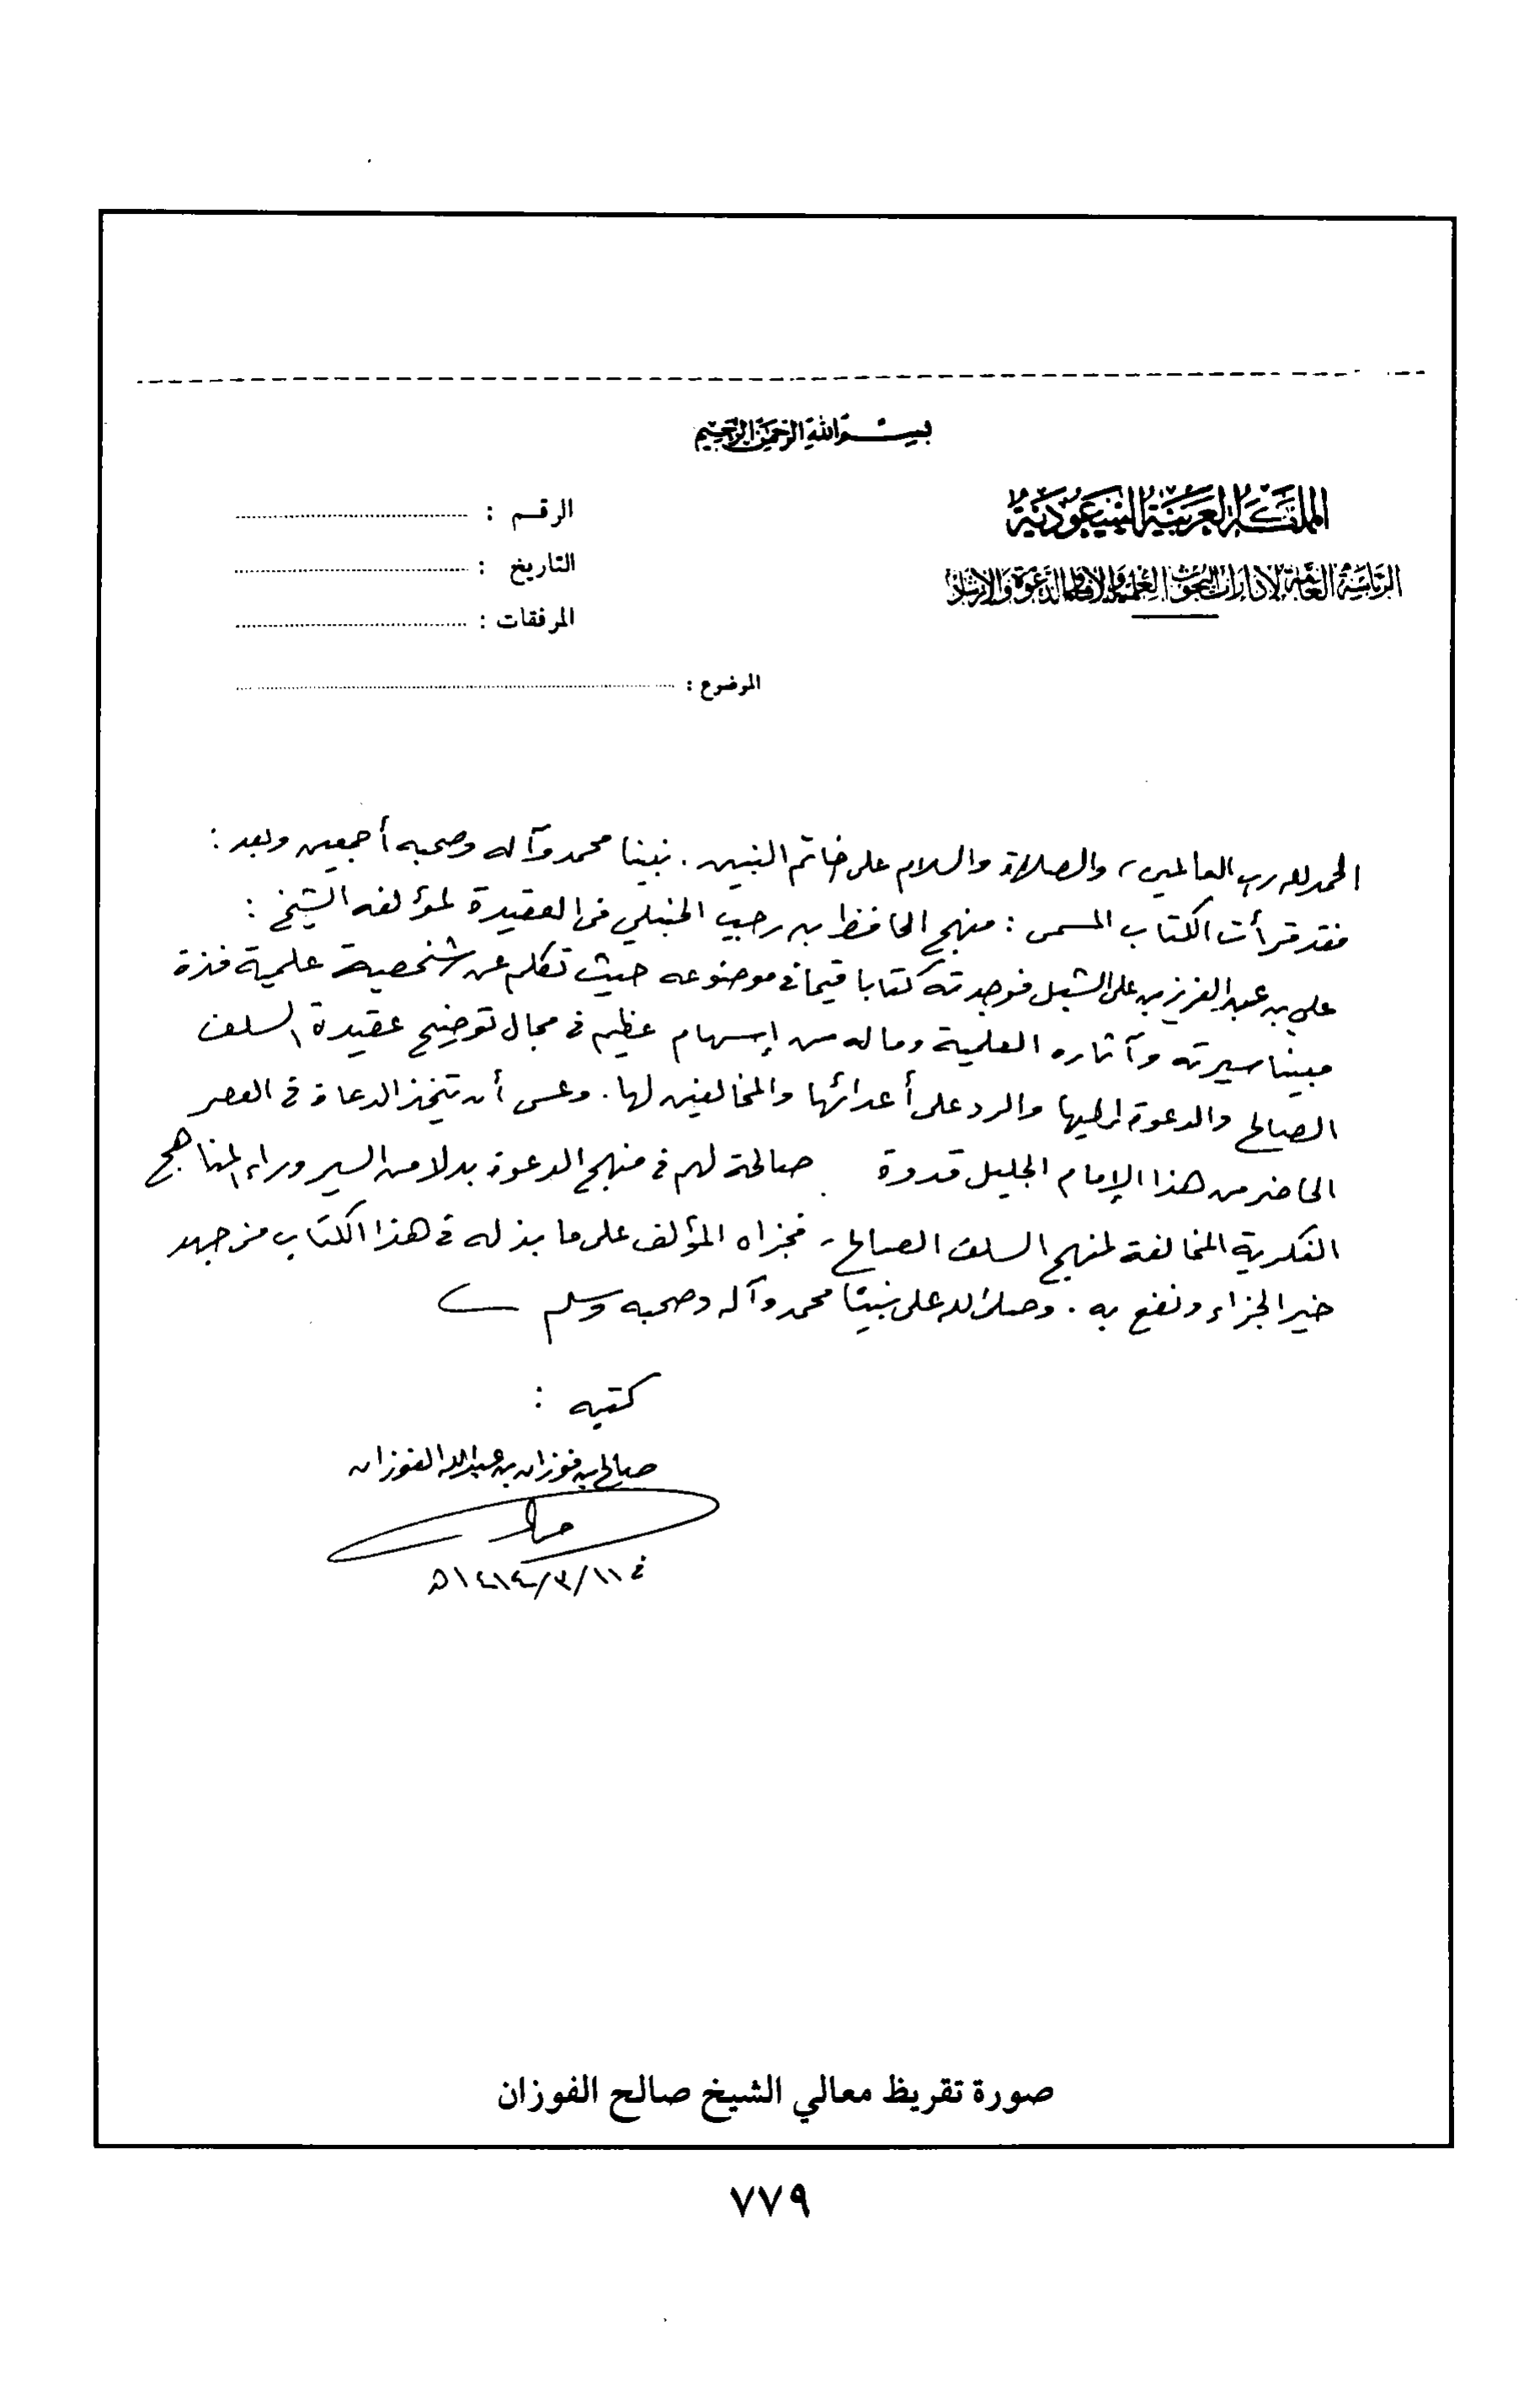 بسم الله الرحمن الرحيم
المملكة العربية السعودية
الرئاسة العامة لإدارات البحوث العلمية والإفتاء والدعوة والإرشاد
الرقم :
التاريخ :
المرفقات :
الموضوع :
الحمد لله رب العالمين، والصلاة والسلام على خاتم النبيين. نبينا محمد وآله وصحبه أجمعين وبعد :
فقد قرأت الكتاب المسمى : منهج الحافظ بن رجب الحنبلي في العقيدة لمؤلفه الشيخ :
علي بن عبد العزيز بن علي الشبل فوجدته كتابا قيما في موضوعه حيث تكلم عن شخصية علمية فذة
مبينا سيرته وآثاره العلمية وماله من إسهام عظيم في مجال توضيح عقيدة السلف
الصالح والدعوة إليها والرد على أعدائها والمخالفين لها. وعسى أن تتخذ الدعاة في العصر
الحاضر من هذا الإمام الجليل قدوة صالحة لهم في منهج الدعوة بدلا من السير وراء المناهج
الفكرية المخالفة لمنهج السلف الصالح، فجزاه المؤلف على ما بذله في هذا الكتاب من جهد
خير الجزاء ونفع به. وصلى الله على نبينا محمد وآله وصحبه وسلم
كتبه :
صالح بن فوزان بن عبد الله الفوزان
في ١١/٣/١٤١٤ه
صورة تقريظ معالي الشيخ صالح الفوزان
٧٧٩